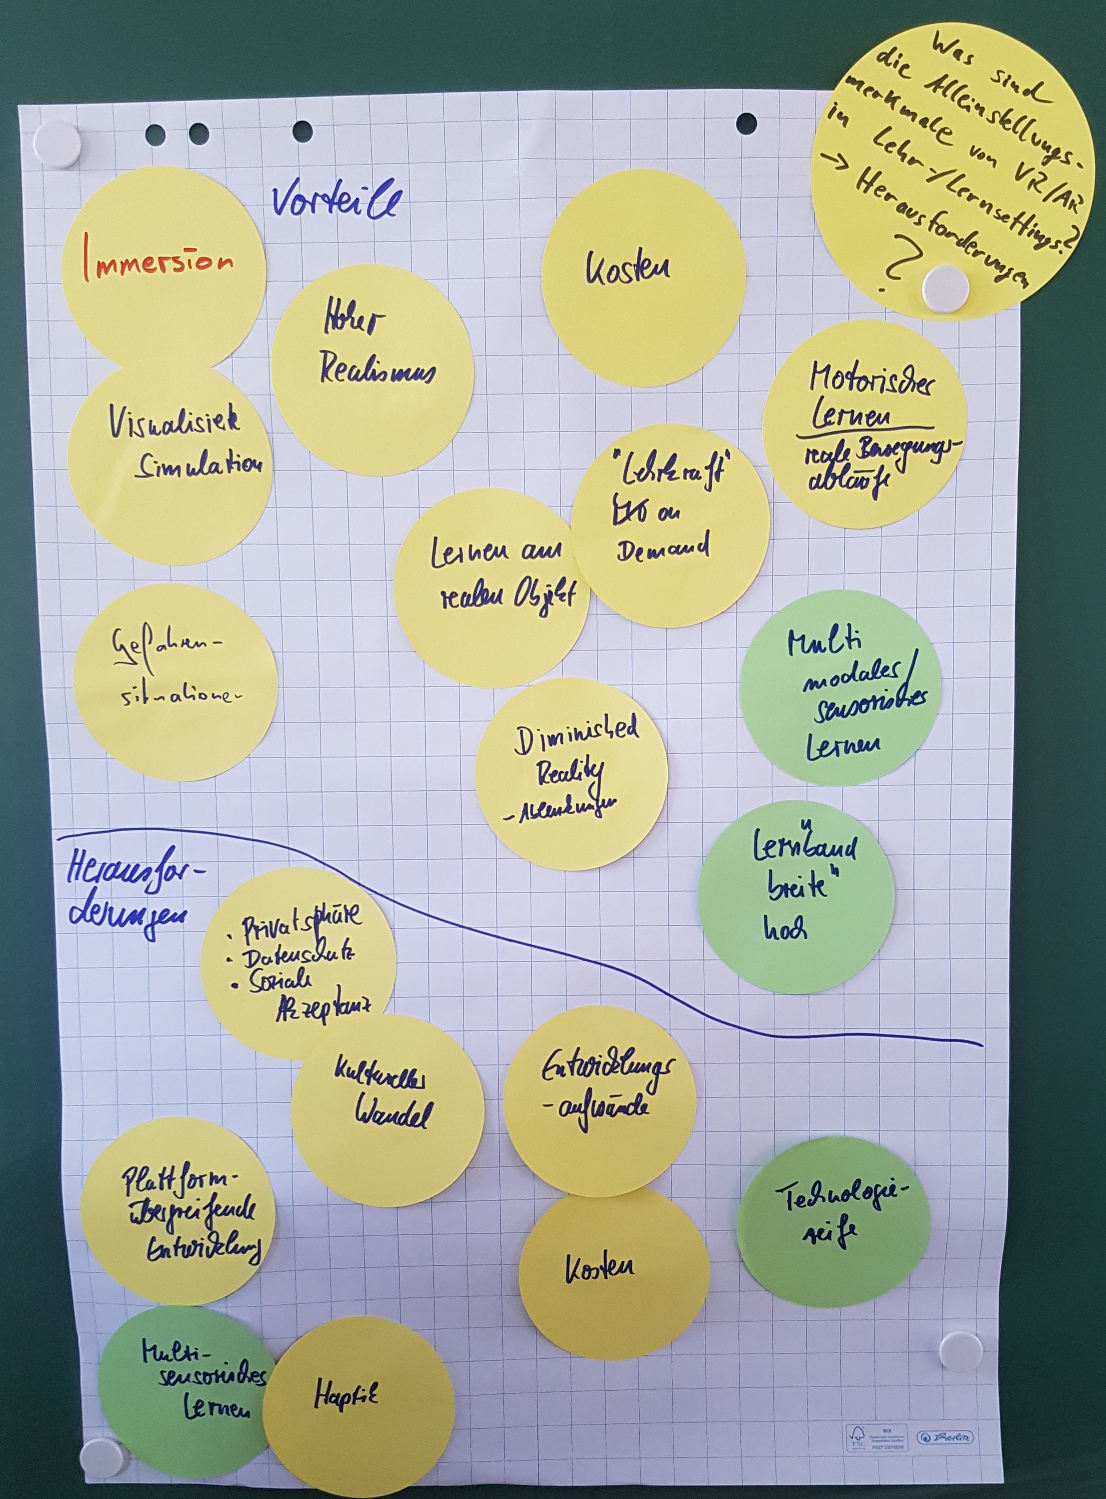 Was sind
die Alleinstellungs-
merkmale von VR/AR
in Lehr-/Lernsettings?
→ Herausforderungen
?
Vorteile
Immersion
Hoher
Realismus
Kosten
Visualisier
Simulation
Motorisches
Lernen
reale Bewegungs-
abläufe
"Lehrkraft"
on
Demand
Lernen am
realen Objekt
Gefahren-
situationen
Multi
modales/
sensorisches
Lernen
Diminished
Reality
- Ablenkungen
Lern"band
breite"
hoch
Herausfor-
derungen
• Privatsphäre
• Datenschutz
• Soziale
Akzeptanz
Kultureller
Wandel
Entwicklungs
-aufwände
Plattform-
übergreifende
Entwicklung
Technologie-
reife
Kosten
Multi-
sensorisches
Lernen
Haptik
FSC
MIX
Herlitz